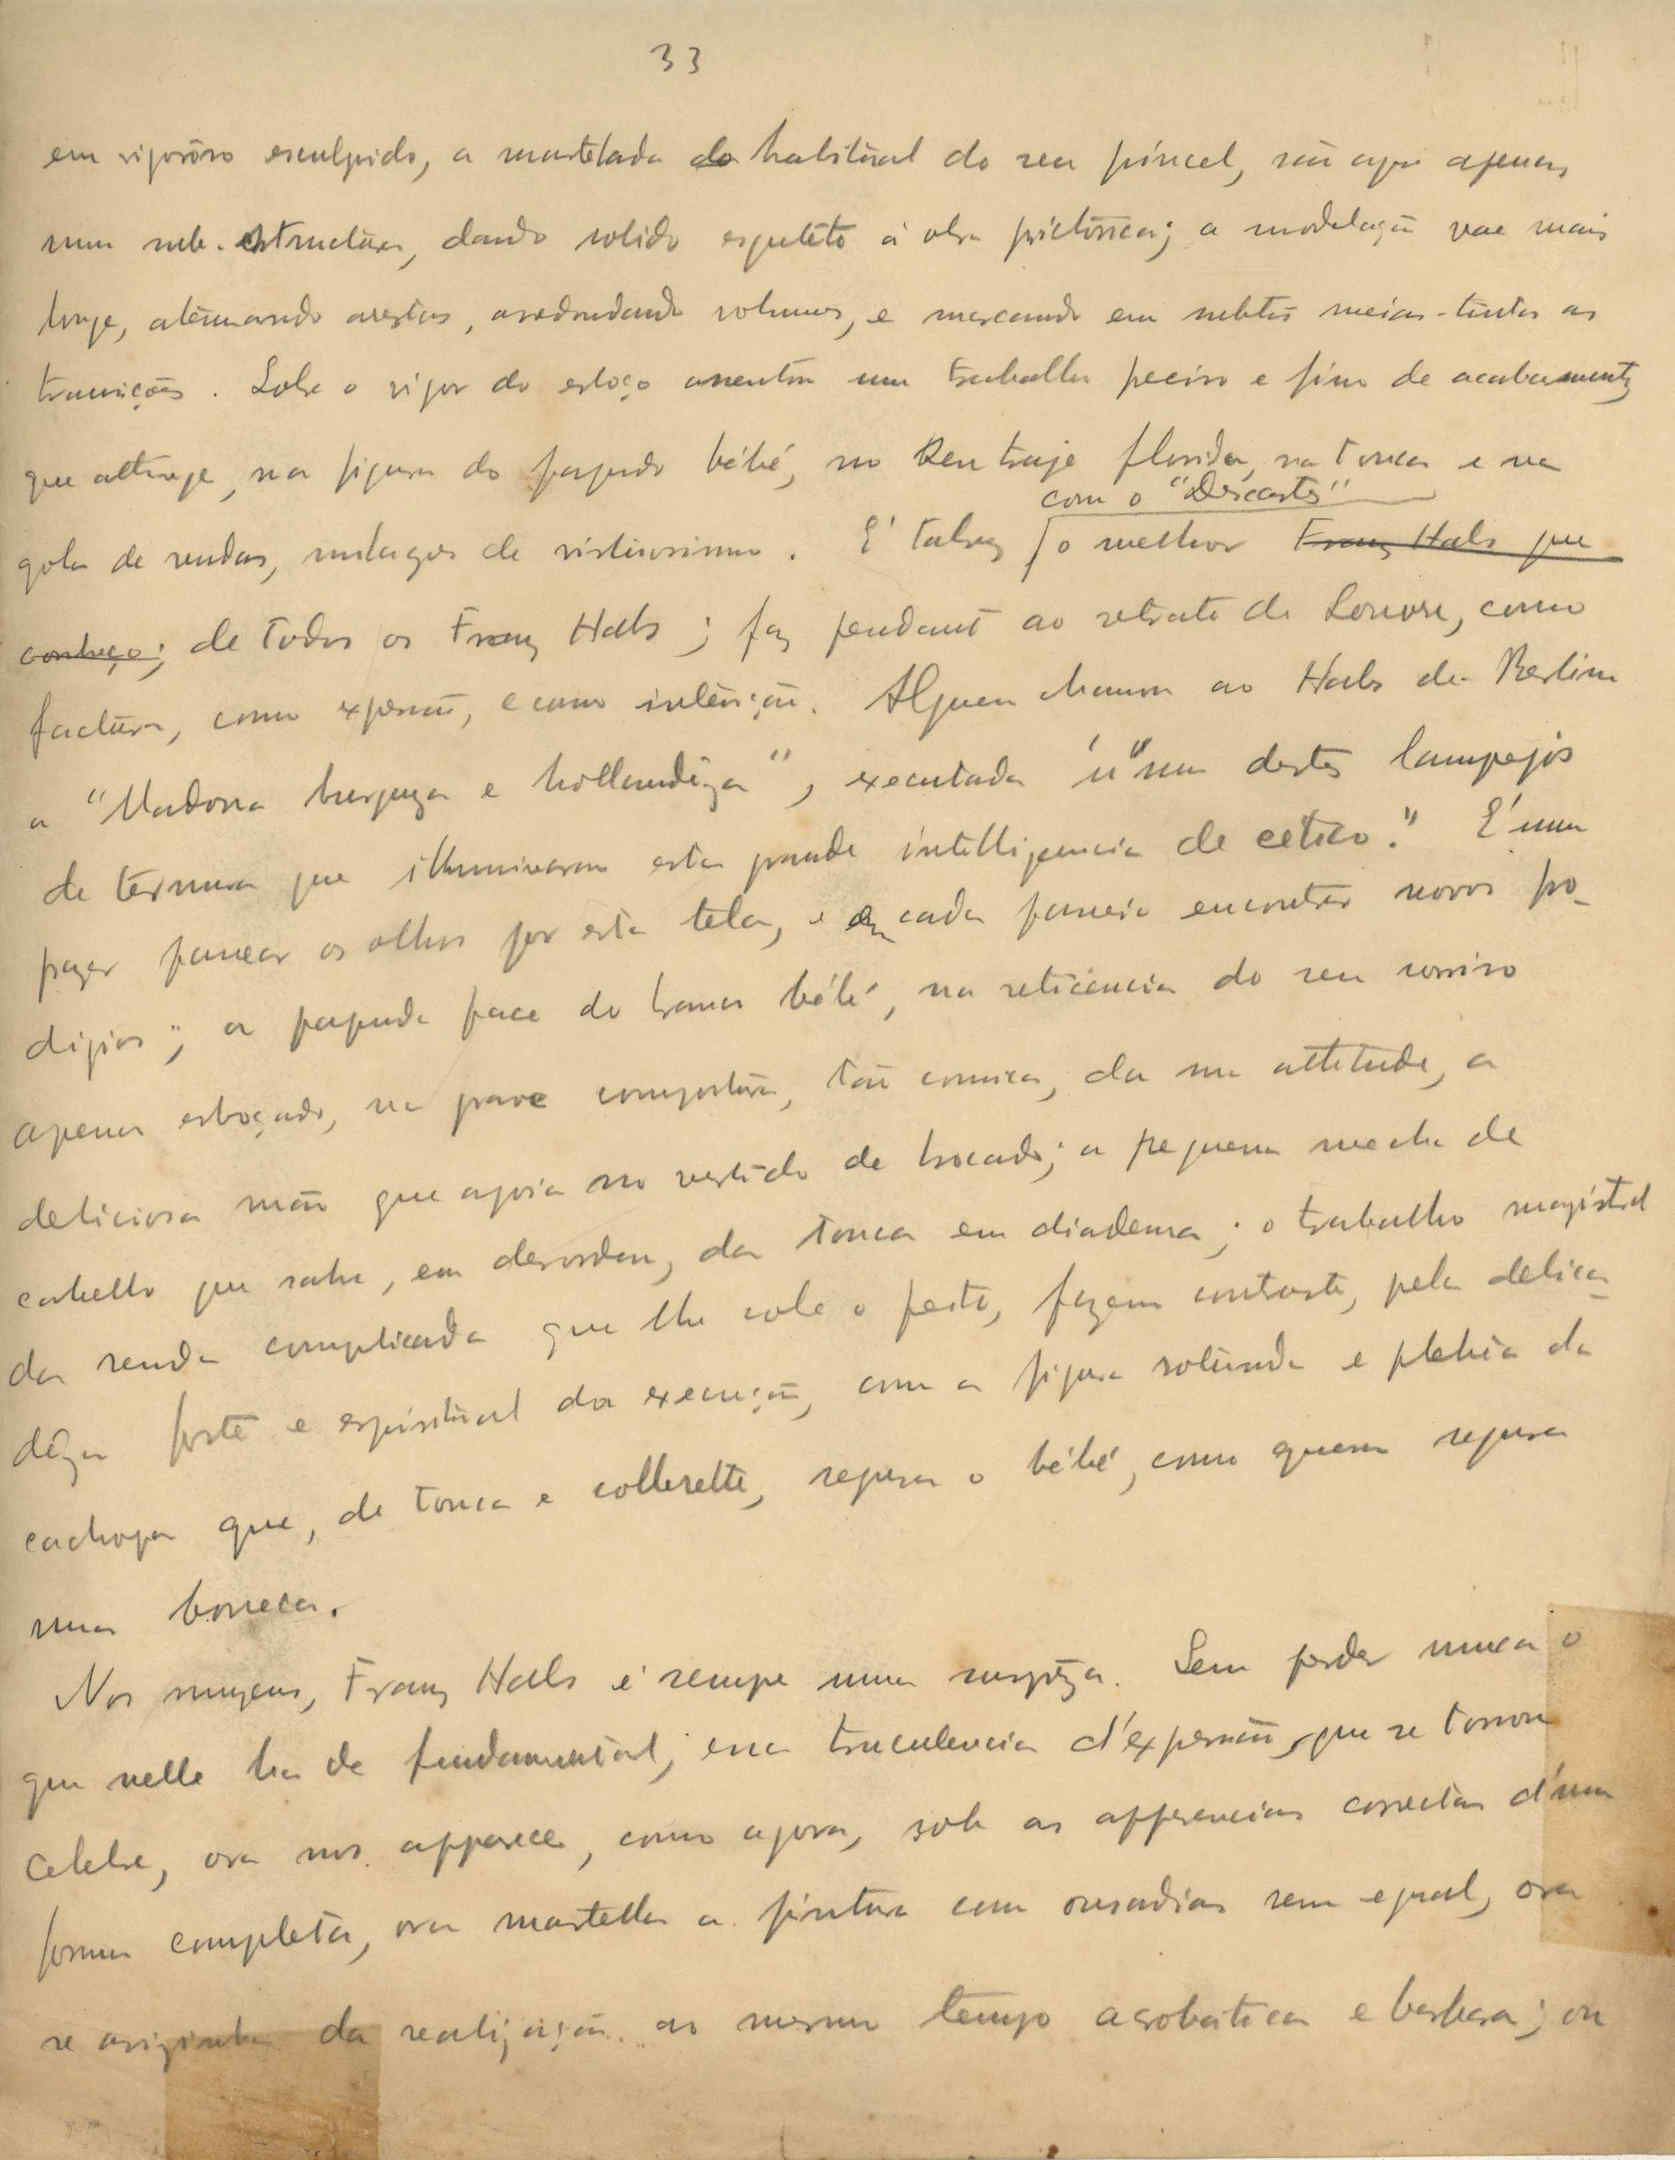 33
em vigorôso esculpido, a martelada habitual do seu pincel, são aqui apenas
uma sub-estructura, dando solido esqueleto á obra pictorica; a modelação vae mais
longe, atenuando arestas, arredondando volumes, e marcando em subtis meias-tintas as
transições. Sobre o vigor do esboço assenta um trabalho preciso e fino de acabamento,
que attinge, na figura do papudo bébé, no seu traje florido, na touca e na
com o "Descartes"
gola de rendas, milagres de virtuosismo. É talvez o melhor Franz Hals que
conheço; de todos os Franz Hals; faz pendant ao retrato do Louvre, como
factura, como expressão, e como intenção. Alguem chamou ao Hals de Berlim
a "Madona burgueza e hollandêza", executada "n'um destes lampejos
de ternura que illuminaram esta grande intelligencia de cético." É um
prazer passear os olhos por esta tela, e em cada passeio encontrar novos pro-
digios; a papuda face do bébé, na reticencia do seu sorriso
apenas esboçado, na grave compostura, tão comica, da sua attitude, a
deliciosa mão que apoia no vestido de brocado; a pequena mecha de
cabello que sahe, em desordem, da touca em diadema; o trabalho magistral
da renda complicada que lhe cobre o peito, fazem contraste, pela delica-
dêza forte e espiritual da execução, com a figura rotunda e plebêa da
cachopa que, de touca e collerette, segura o bébé, como quem segura
uma boneca.
Nos museus, Franz Hals é sempre uma surprêza. Sem perder nunca o
que nelle ha de fundamental, essa truculencia d'expressão, que se tornou
celebre, ora nos apparece, como agora, sob as apparencias correctas d'uma
forma completa, ora martella a pintura com ousadias sem egual, ora
se da realização ao mesmo tempo acrobatica e barbara; ou